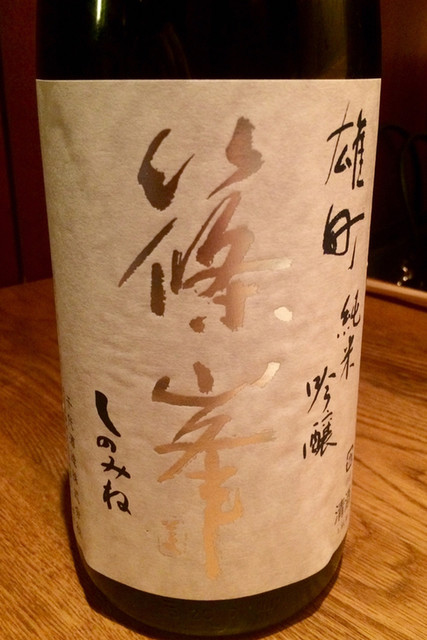 雄町 純米 吟醸
篠峯
しのみね
清酒